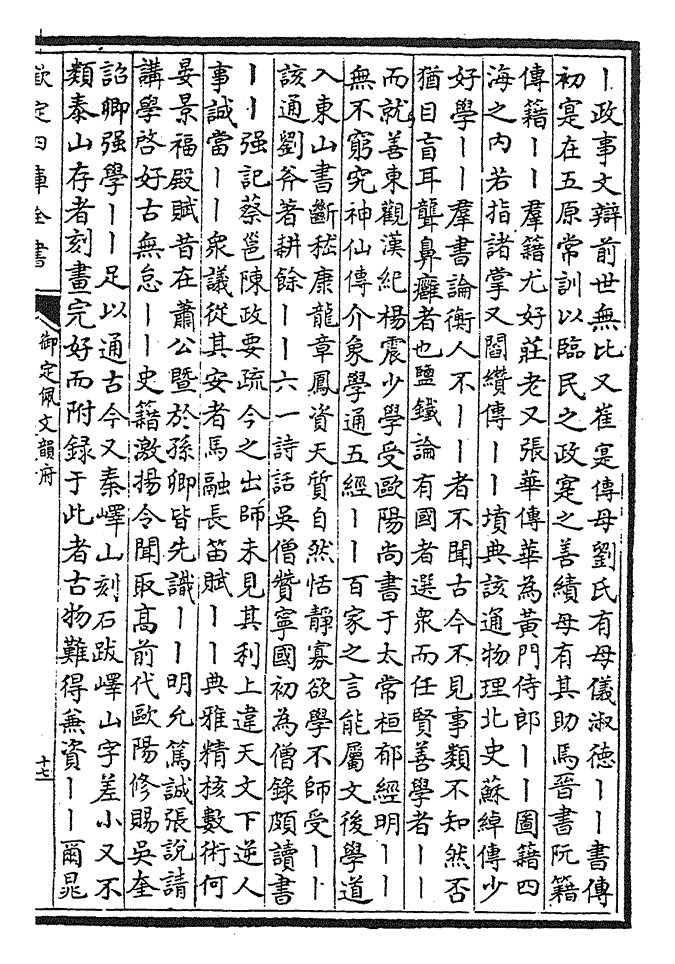 丨政事文辯前世無比又崔寔傳母劉氏有母儀淑德丨丨書傳
初寔在五原常訓以臨民之政寔之善績母有其助焉晉書阮籍
傳籍丨丨羣籍尤好莊老又張華傳華為黃門侍郎丨丨圖籍四
海之內若指諸掌又閻纘傳丨丨墳典該通物理北史蘇綽傳少
好學丨丨羣書論衡人不丨丨者不聞古今不見事類不知然否
猶目盲耳聾鼻癰者也鹽鐵論有國者選衆而任賢善學者丨丨
而就善東觀漢紀楊震少學受歐陽尚書于太常桓郁經明丨丨
無不窮究神仙傳介象學通五經丨丨百家之言能屬文後學道
入東山書斷嵇康龍章鳳資天質自然恬靜寡欲學不師受丨丨
該通劉斧著耕餘丨丨六一詩話吳僧贊寧國初為僧錄頗讀書
丨丨强記蔡邕陳政要疏今之出師未見其利上違天文下逆人
事誠當丨丨衆議從其安者馬融長笛賦丨丨典雅精核數術何
晏景福殿賦昔在蕭公暨於孫卿皆先識丨丨明允篤誠張說請
講學啓好古無怠丨丨史籍激揚令聞取高前代歐陽修賜吳奎
詔卿强學丨丨足以通古今又秦嶧山刻石跋嶧山字差小又不
類泰山存者刻畫完好而附録于此者古物難得兼資丨丨爾晁
欽定四庫全書
御定佩文韻府
十七